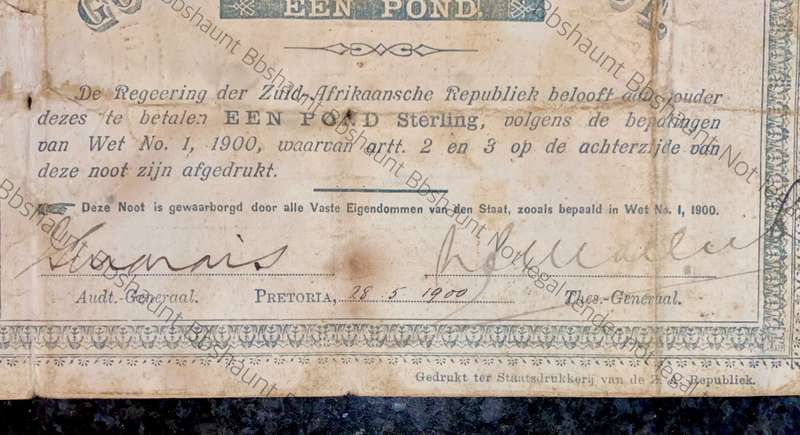 EEN POND
De Regeering der Zuid-Afrikaansche Republiek belooft aan houder
dezes te betalen EEN POND Sterling, volgens de bepalingen
van Wet No. 1, 1900, waarvan artt. 2 en 3 op de achterzijde van
deze noot zijn afgedrukt.
Deze Noot is gewaarborgd door alle Vaste Eigendommen van den Staat, zooals bepaald in Wet No. 1, 1900.
Audt.-Generaal. PRETORIA, 28 5 1900 Thes.-Generaal.
Gedrukt ter Staatsdrukkerij van de Z. A. Republiek.
Bbshaunt Bbshaunt Bbshaunt Not legal tender